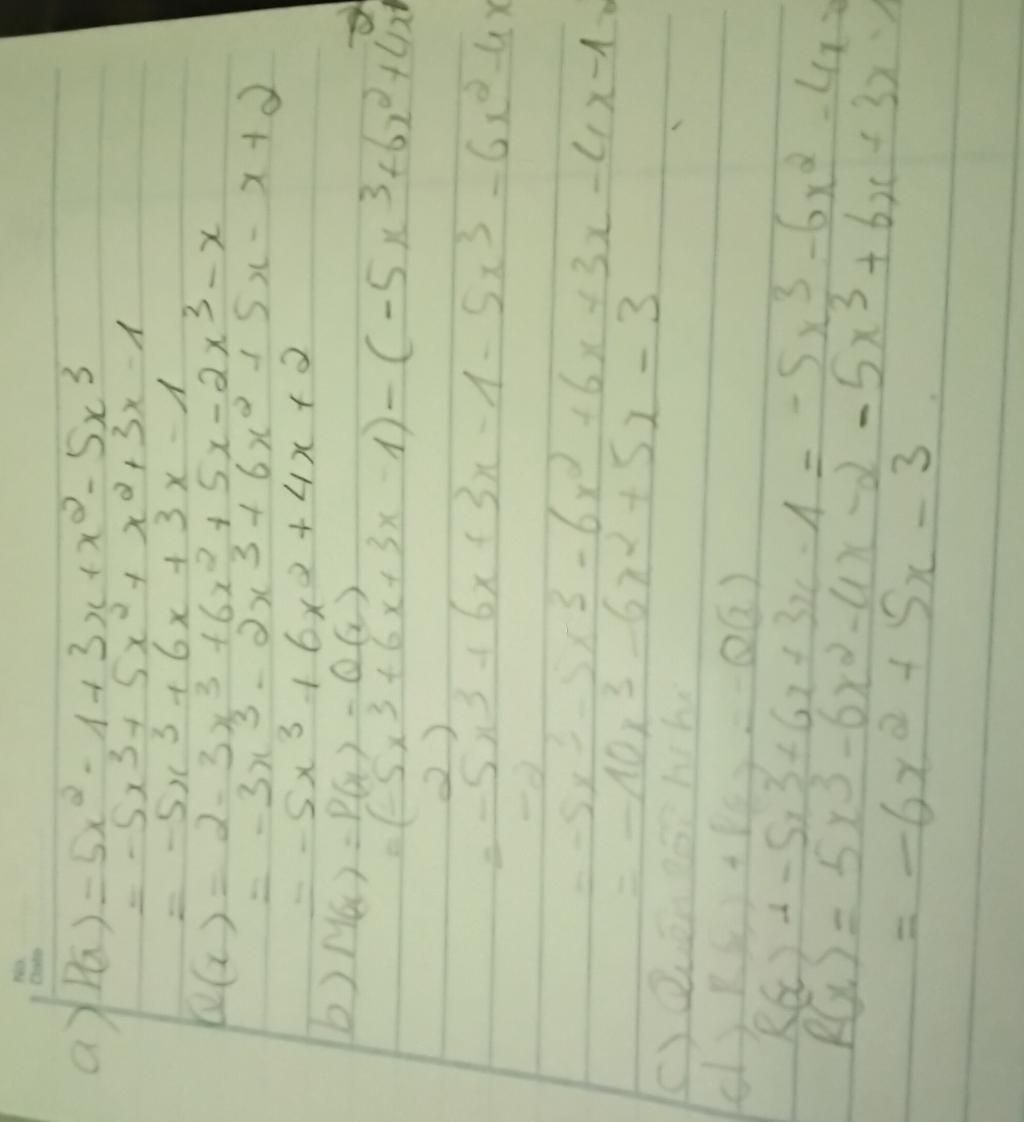 No.
Date
a) P(x) = 5x² - 1 + 3x + x² - 5x³
= -5x³ + 5x² + x² + 3x - 1
= -5x³ + 6x + 3x - 1
Q(x) = 2 - 3x³ + 6x² + 5x - 2x³ - x
= -3x³ - 2x³ + 6x² + 5x - x + 2
= -5x³ + 6x² + 4x + 2
b) M(x) = P(x) - Q(x)
= (-5x³ + 6x + 3x - 1) - (-5x³ + 6x² + 4x + 2
2)
= -5x³ + 6x + 3x - 1 - 5x³ - 6x² - 4x
-2
= -5x³ - 5x³ - 6x² + 6x + 3x - 4x - 1 - 2
= -10x³ - 6x² + 5x - 3
c) Quên rồi hihi
d) R(x) + P(x) = -Q(x)
R(x) + -5x³ + 6x + 3x - 1 = -5x³ - 6x² - 4x - 2
R(x) = 5x³ - 6x² - 4x - 2 - 5x³ + 6x + 3x - 1
= -6x² + 5x - 3